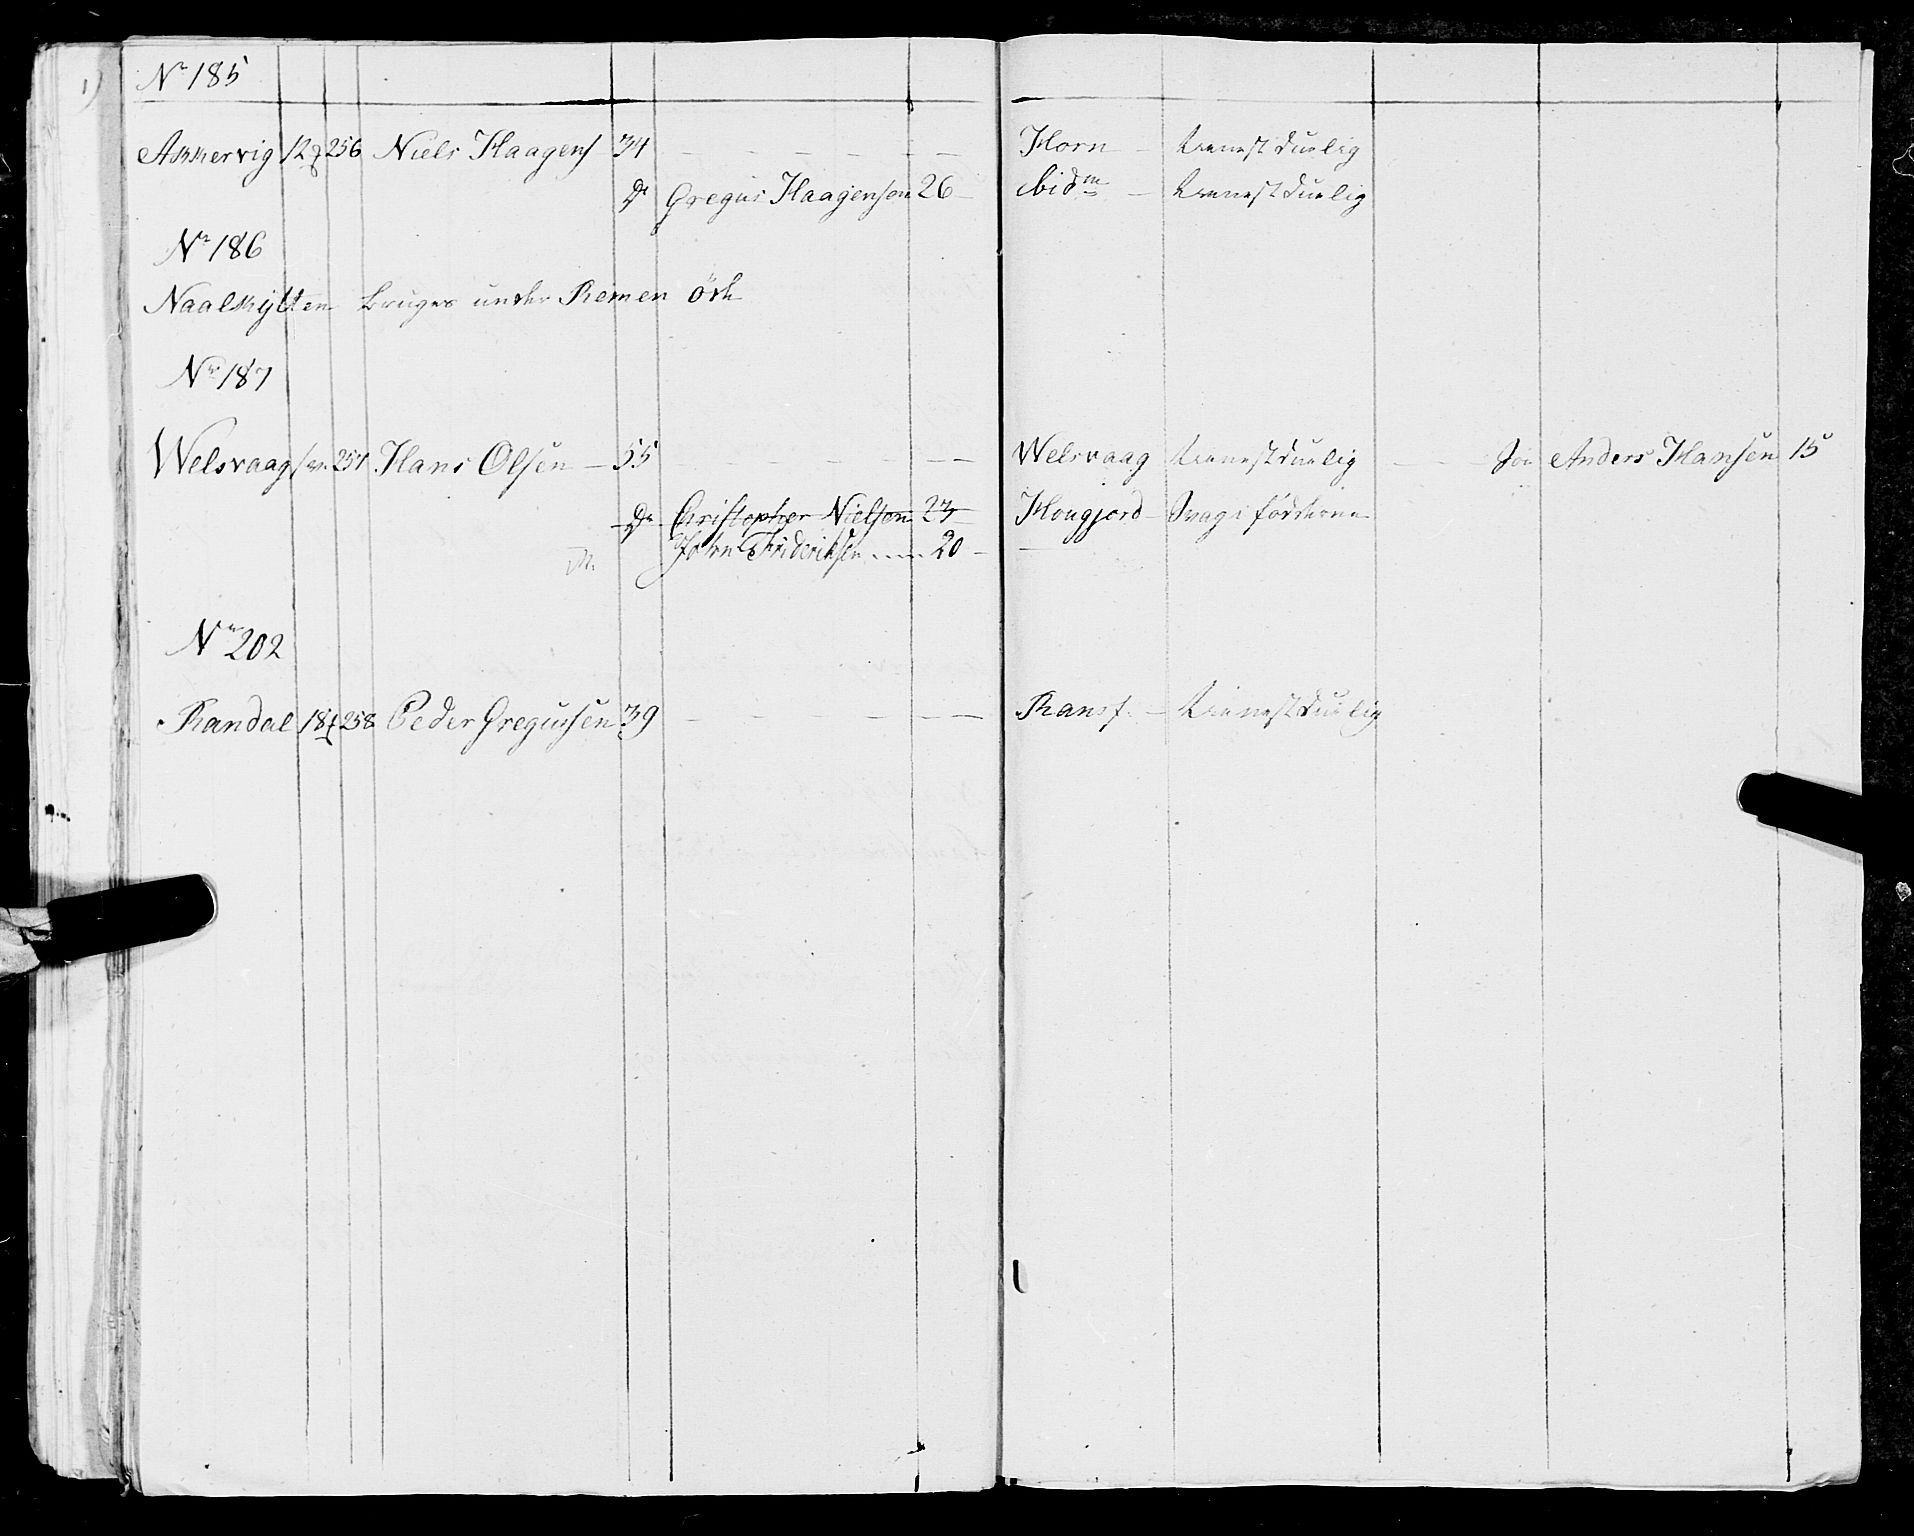 Nr 185
Askervig 12 256 Niels Haagens 34 — — — — — — Horn — tienestduelig
Dr Gregus Haagensen 26 — ibidm — tienestduelig
Nr 186
Naalskytten bruges under Remen öde
Nr 187
Welsvaag 257 Hans Olsen — 55 — — — — — Welsvaag tienestduelig — — Søn Anders Hansen 15
Dr Christopher Nielsen 23 Hougjord — Svag i födderne
John Frideriksen 20 —
Nr 202
Randal 18 258 Peder Gregussen 39 — — — — — — Ransf. — tienestduelig